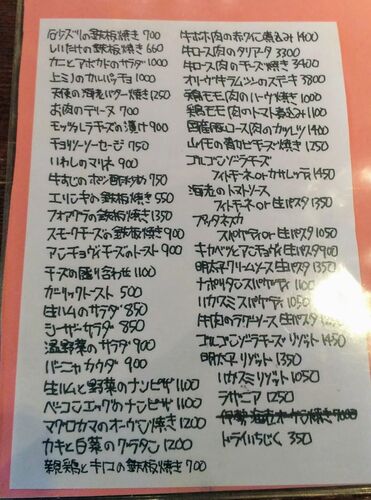 砂ズリの鉄板焼き 700
しいたけの鉄板焼き 660
カニとアボカドのサラダ 1000
上ミノのカルパッチョ 1000
天使の海老バター焼き 1250
お肉のテリーヌ 700
モッツァレラチーズの漬け 900
チョリソーソーセージ 750
いわしのマリネ 900
牛すじのポン酢炒め 750
エリンギの鉄板焼き 550
フォアグラの鉄板焼き 1350
スモークチーズの鉄板焼き 900
アンチョヴィチーズのトースト 900
チーズの盛り合わせ 1100
ガーリックトースト 500
生ハムのサラダ 850
シーザーサラダ 850
温野菜のサラダ 900
バーニャカウダ 900
生ハムと野菜のナンピザ 1100
ベーコンエッグのナンピザ 1100
マグロカマのオーブン焼き 1200
カキと白菜のグラタン 1200
親鶏とキモの鉄板焼き 700
牛ホホ肉の赤ワイン煮込み 1400
牛ロース肉のタリアータ 3300
牛ロース肉のチーズ焼き 3400
オリーヴ牛ラムシンのステーキ 3800
鶏モモ肉のハーヴ焼き 1000
鶏モモ肉のトマト煮込み 1100
国産豚ロース肉のカツレツ 1400
山イモの青カビチーズ焼き 1250
ゴルゴンゾーラチーズ
フィットチーネ or カサレッチェ 1450
海老のトマトソース
フィットチーネ or 生パスタ 1350
プッタネスカ
スパゲティ or 生パスタ 1050
キャベツとアンチョヴィ 生パスタ 900
明太子クリームソース 生パスタ 1350
ナポリタンスパゲティ 1100
ハカスミスパゲティ 1050
牛肉のラグーソース 生パスタ 1200
ゴルゴンゾーラリゾット 1450
明太子リゾット 1350
ハカスミリゾット 1050
ラザニア 1250
伊勢海老オーブン焼き 7000
ドライいちじく 350